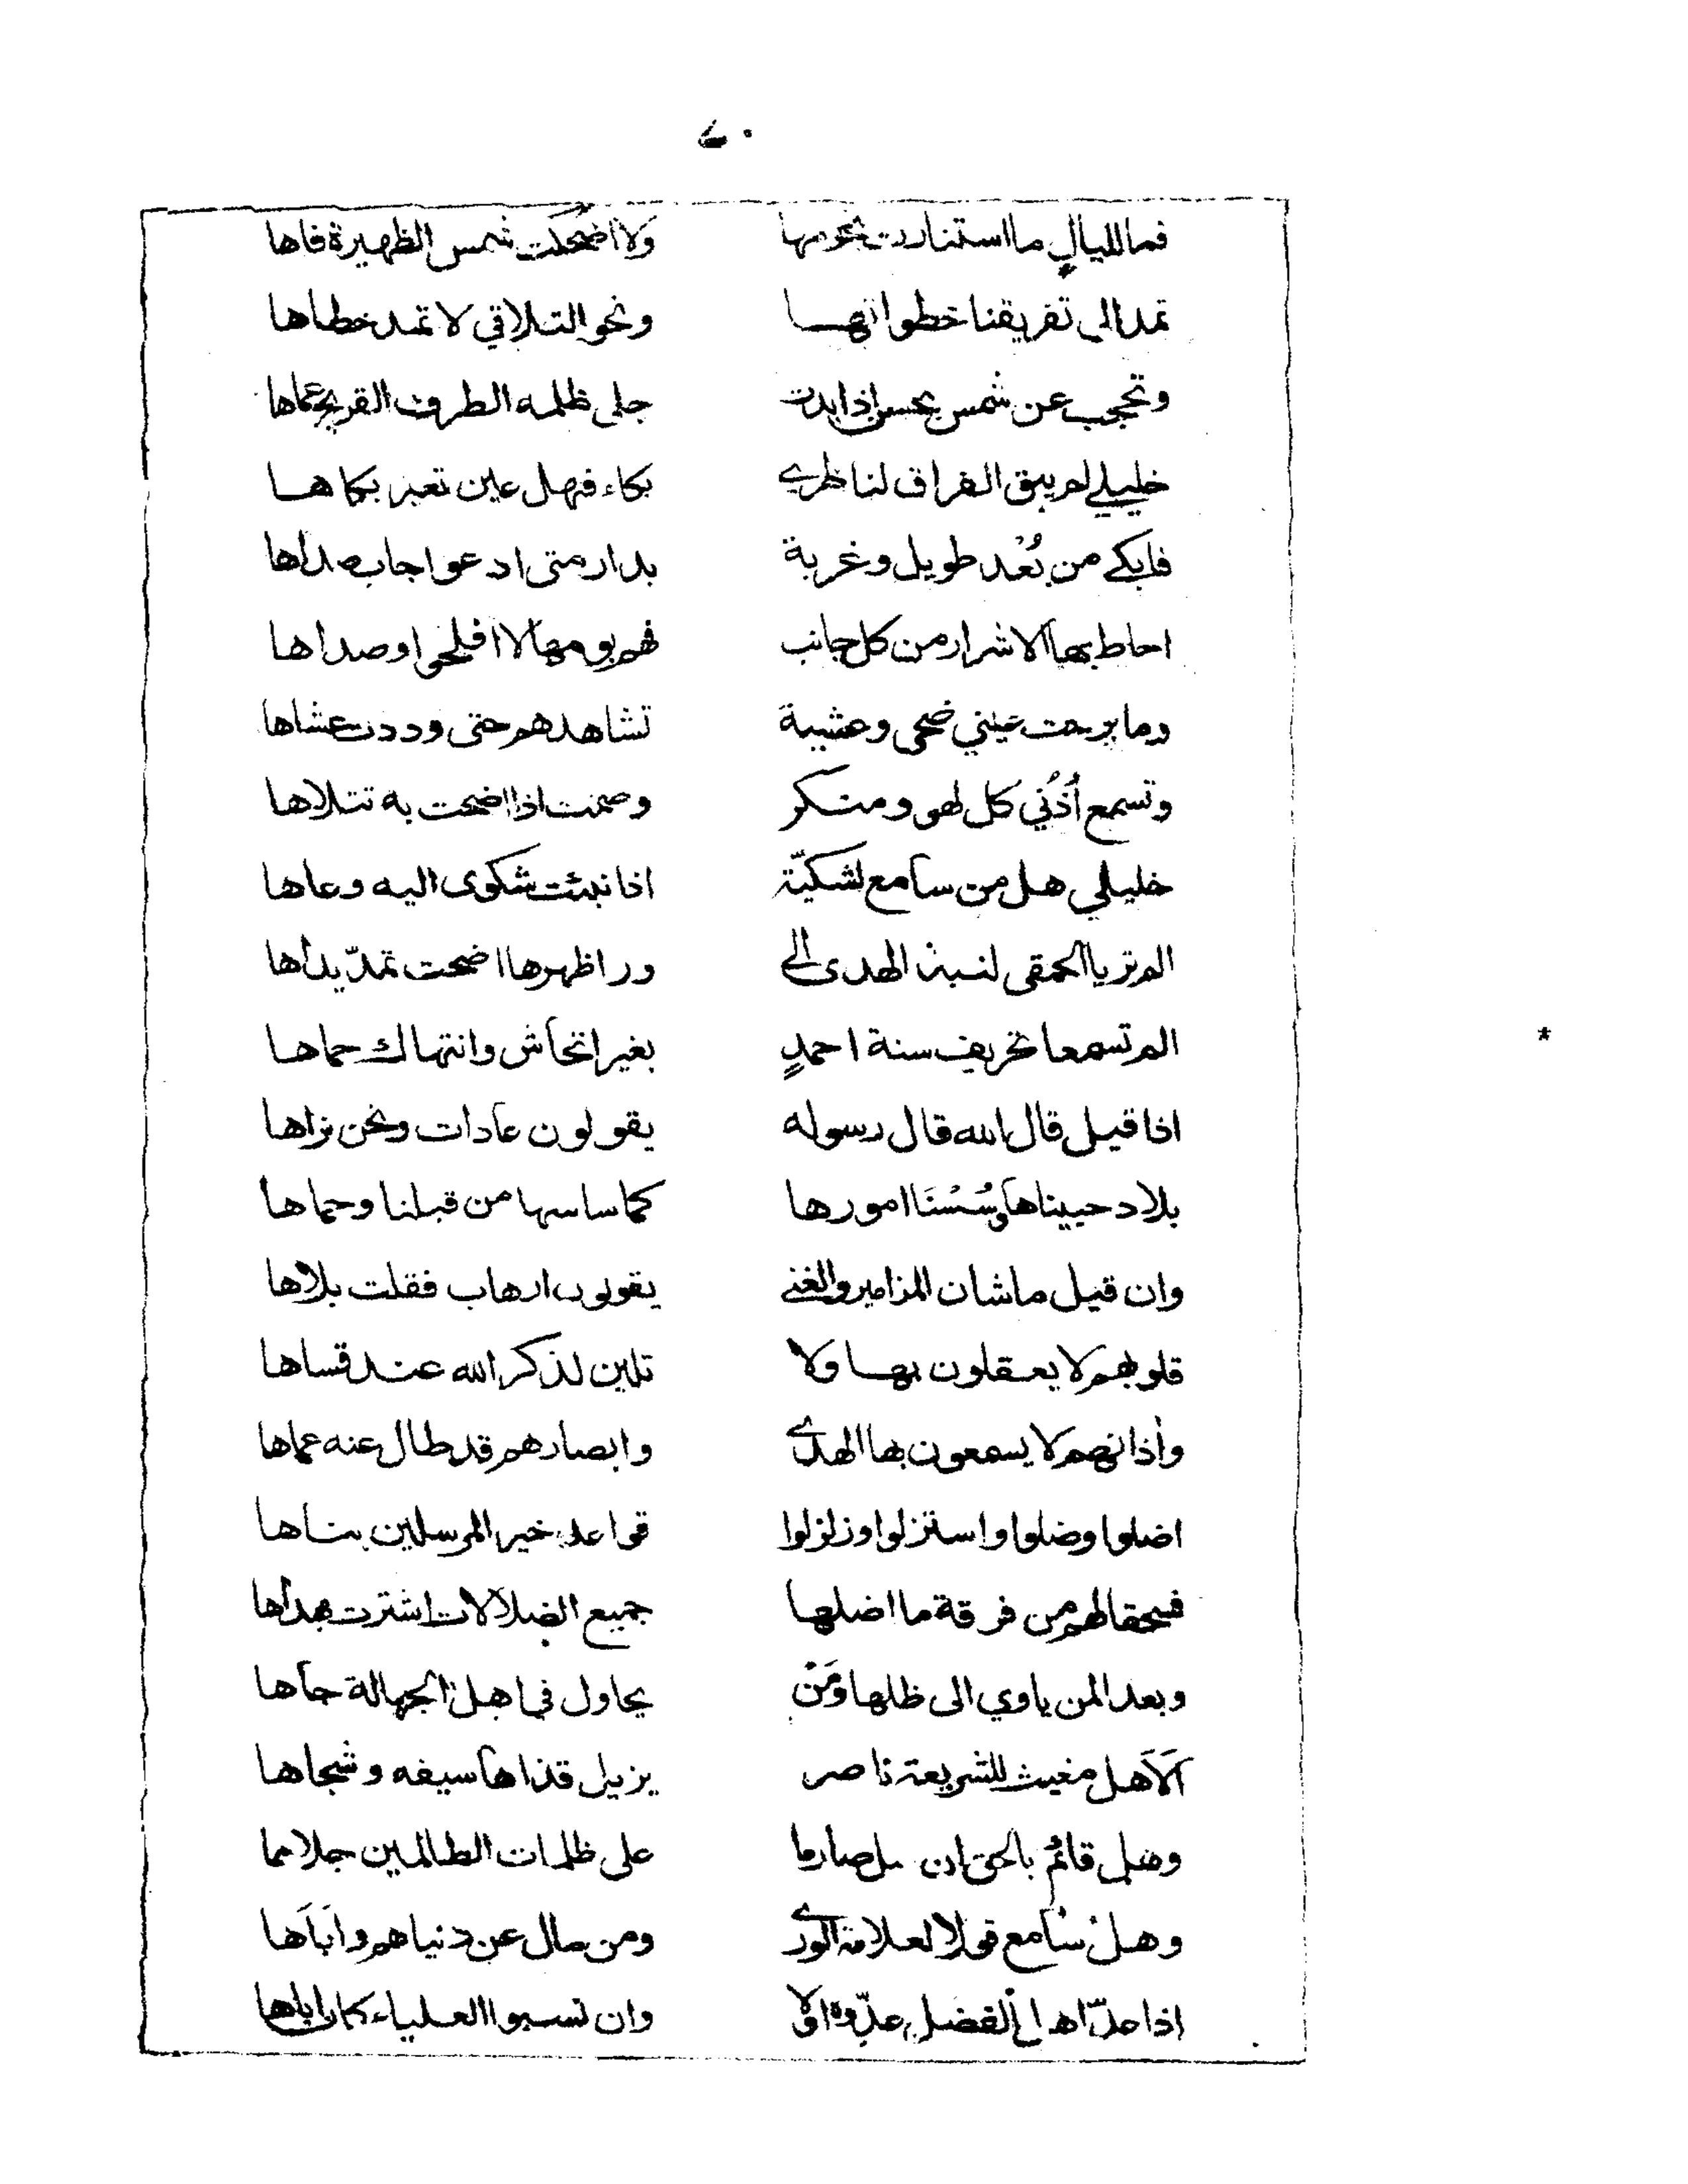 فما لليالٍ ما استنارت نجومها ولا اضحكت شمس الظهيرة فاها
تمد الى تفريقنا خطواتها ونحو التلاقي لا تمد خطاها
وتحجب عن شمس بحسن اذا بدت جلى ظلمه الطرف القريح عماها
خليلي لم يبق الفراق لناظري بكاء فهل عين تعير بكاها
فابكي من بُعْد طويل وغربة بدار متى ادعو اجاب صداها
احاط بها الاشرار من كل جانب فهم بومها لا افلحوا وصداها
وما برحت عيني ضحى وعشية تشاهدهم حتى وددت عشاها
وتسمع أذُني كل لهو ومنكر وصمت اذا اضحت به تتلاها
خليلي هل من سامع لشكيّة اذا نبئت شكوى اليه وعاها
الم تر يا الحمقى لنبذ الهدى الي ورا ظهرها اضحت تمدّ يداها
الم تسمعا تحريف سنة احمدٍ بغير اتحاش وانتهاك حماها
اذا قيل قال الله قال رسوله يقولون عادات ونحن نراها
بلاد حبيناها وسُسْنَا امورها كما ساسها من قبلنا وحماها
وان قيل ماشان المزامير والغنے يقولون ارهاب فقلت بلاها
قلوبهم لا يعقلون بها ولا تلين لذكر الله عند قساها
وأذانهم لا يسمعون بها الهدى وابصارهم قد طال عنه عماها
اضلوا وضلوا واستزلوا وزلزلوا قواعد خير المرسلين بناها
فسحقا لهم من فرقة ما اضلها جميع الضلالات اشترت بهداها
وبعدا لمن ياوي الى ظلها ومَنْ يحاول في اهل الجهالة جاها
اَلاَ هل مغيث للشريعة ناصر يزيل قذاها سيفه وشجاها
وهل قائم بالحق ان سل صارما على ظلمات الظالمين جلاها
وهل سامع قولا لعلامة الورى ومن مال عن دنياهم واَباَها
اذا حلّ اهل الفضل وان نسبوا العلياء اباها
*